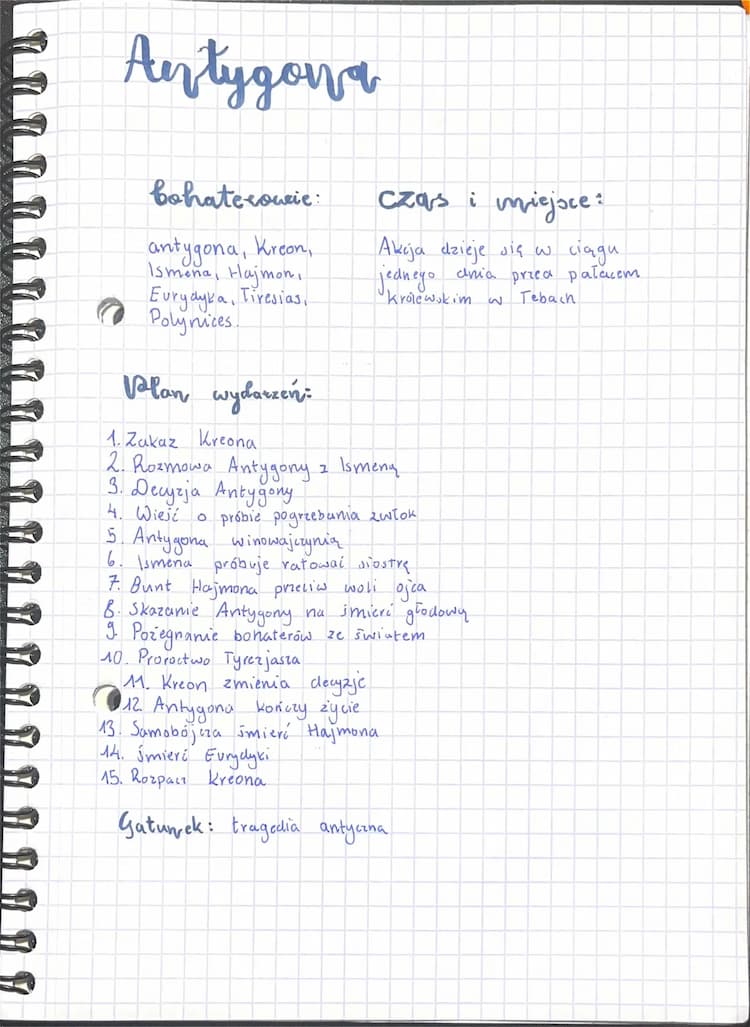 Antygona
bohaterowie:
antygona, Kreon,
Ismena, Hajmon,
Eurydyka, Tiresias,
Polynices.
czas i miejsce:
Akcja dzieje się w ciągu
jednego dnia przed pałacem
królewskim w Tebach
Plan wydarzeń:
1. Zakaz Kreona
2. Rozmowa Antygony z Ismeną
3. Decyzja Antygony
4. Wieść o próbie pogrzebania zwłok
5. Antygona winowajczynią
6. Ismena próbuje ratować siostrę
7. Bunt Hajmona przeciw woli ojca
8. Skazanie Antygony na śmierć głodową
9. Pożegnanie bohaterów ze światem
10. Proroctwo Tyrezjasza
11. Kreon zmienia decyzję
12. Antygona kończy życie
13. Samobójcza śmierć Hajmona
14. śmierć Eurydyki
15. Rozpacz Kreona
Gatunek: tragedia antyczna